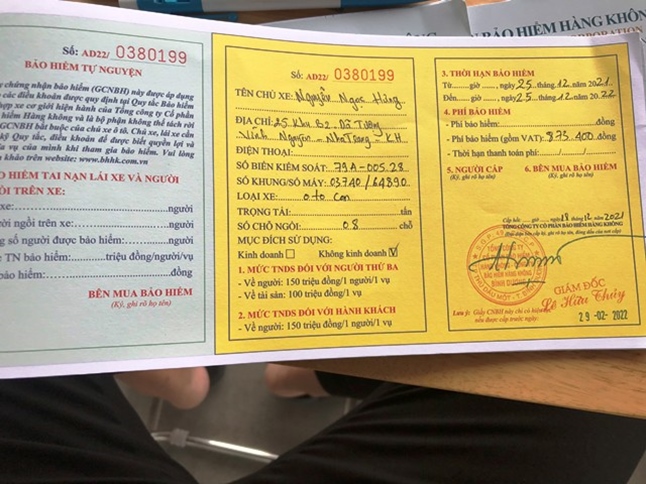 BẢO HIỂM HÀNG KHÔNG
Số: AD22/ 0380199
BẢO HIỂM TỰ NGUYỆN
chứng nhận bảo hiểm (GCNBH) này được áp dụng
các điều khoản được quy định tại Quy tắc Bảo hiểm
xe cơ giới hiện hành của Tổng công ty Cổ phần
hiểm Hàng không và là bộ phận không thể tách rời
GCNBH bắt buộc của chủ xe ô tô. Chủ xe, lái xe cần
kỹ Quy tắc, điều khoản để được biết quyền lợi và
vụ của mình khi tham gia bảo hiểm. Vui lòng
khảo trên website: www.bhhk.com.vn
HIỂM TAI NẠN LÁI XE VÀ NGƯỜI
NGỒI TRÊN XE:
xe: người
người ngồi trên xe: người
số người được bảo hiểm: người
TN bảo hiểm: triệu đồng/người/vụ
bảo hiểm: đồng
BÊN MUA BẢO HIỂM
(Ký, ghi rõ họ tên)
Số: AD22/ 0380199
TÊN CHỦ XE: Nguyễn Ngọc Hùng
ĐỊA CHỈ: 25 Khu B2 Dã Tượng
Vĩnh Nguyên - Nha Trang - KH
ĐIỆN THOẠI:
SỐ BIỂN KIỂM SOÁT: 79A-005.28
SỐ KHUNG/SỐ MÁY: 03740/64890
LOẠI XE: ô tô con
TRỌNG TẢI: tấn
SỐ CHỖ NGỒI: 08 chỗ
MỤC ĐÍCH SỬ DỤNG:
Kinh doanh Không kinh doanh
1. MỨC TNDS ĐỐI VỚI NGƯỜI THỨ BA
- Về người: 150 triệu đồng/1 người/1 vụ
- Về tài sản: 100 triệu đồng/1 vụ
2. MỨC TNDS ĐỐI VỚI HÀNH KHÁCH
- Về người: 150 triệu đồng/1 người/1 vụ
3. THỜI HẠN BẢO HIỂM
Từ giờ , ngày 25 .12 .2021
Đến giờ , ngày 25 .12 .2022
4. PHÍ BẢO HIỂM
- Phí bảo hiểm: đồng
- Phí bảo hiểm (gồm VAT): 873.400 đồng
- Thời hạn thanh toán phí: / /
5. NGƯỜI CẤP 6. BÊN MUA BẢO HIỂM
(Ký, ghi rõ họ tên) (Ký, ghi rõ họ tên)
Cấp hồi giờ ngày 18 /12 năm 2021
TỔNG CÔNG TY CỔ PHẦN BẢO HIỂM HÀNG KHÔNG
BẢO HIỂM HÀNG KHÔNG
BÌNH DƯƠNG
GIÁM ĐỐC
Lê Hữu Thủy
Lưu ý: Giấy CNBH này chỉ có hiệu lực
nếu được cấp trước ngày: 29-02-2022